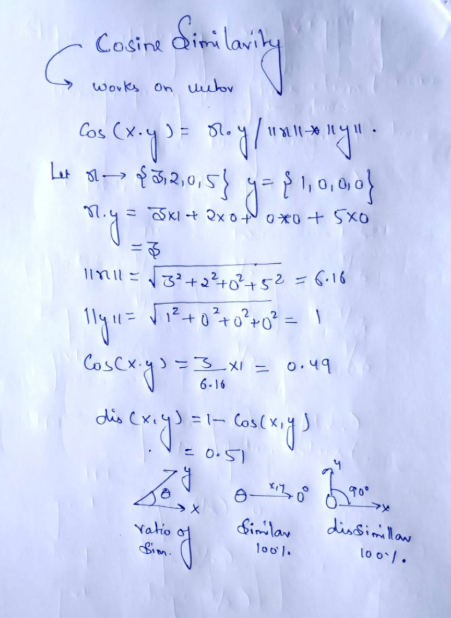 Cosine Similarity
works on vector
Cos (x.y) = x.y / ||x||-* ||y||.
Let x → {3,2,0,5} y = {1,0,0,0}
x.y = 3x1 + 2x0 + 0*0 + 5x0
= 3
||x|| = √3²+2²+0²+5² = 6.16
||y|| = √1²+0²+0²+0² = 1
Cos(x.y) = 3/6.16 x1 = 0.49
dis (x,y) = 1- Cos(x,y)
= 0.51
y θ x
θ x,y → 0°
y 90° x
ratio of Sim.
Similar 100%.
dissimillar 100%.